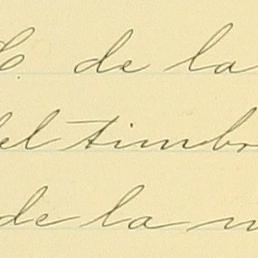 de la
del timbr
de la